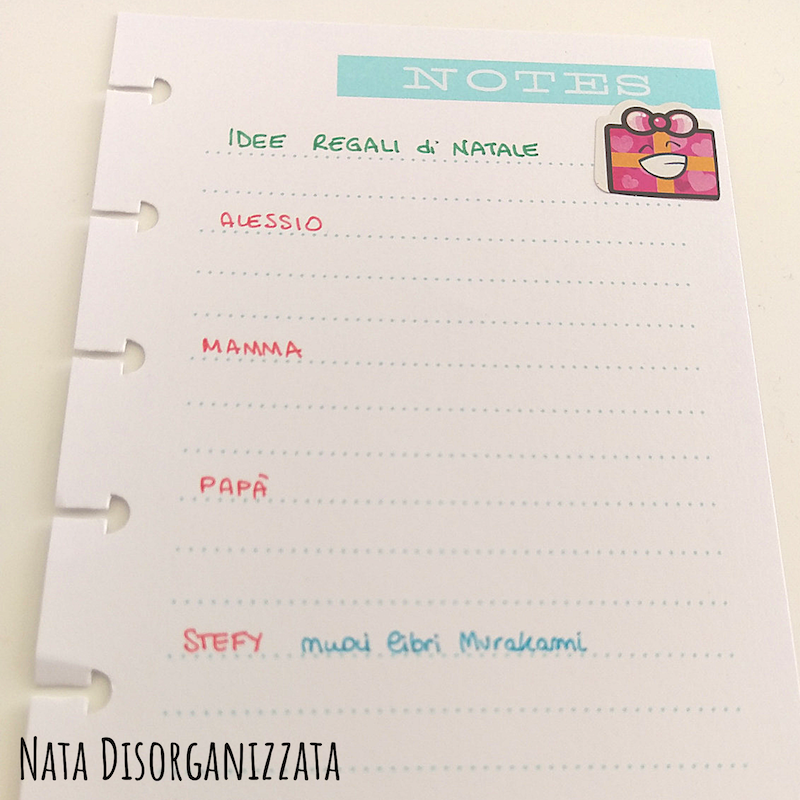 NOTES
IDEE REGALI di NATALE
ALESSIO
MAMMA
PAPÀ
STEFY nuovi libri Murakami
NATA DISORGANIZZATA